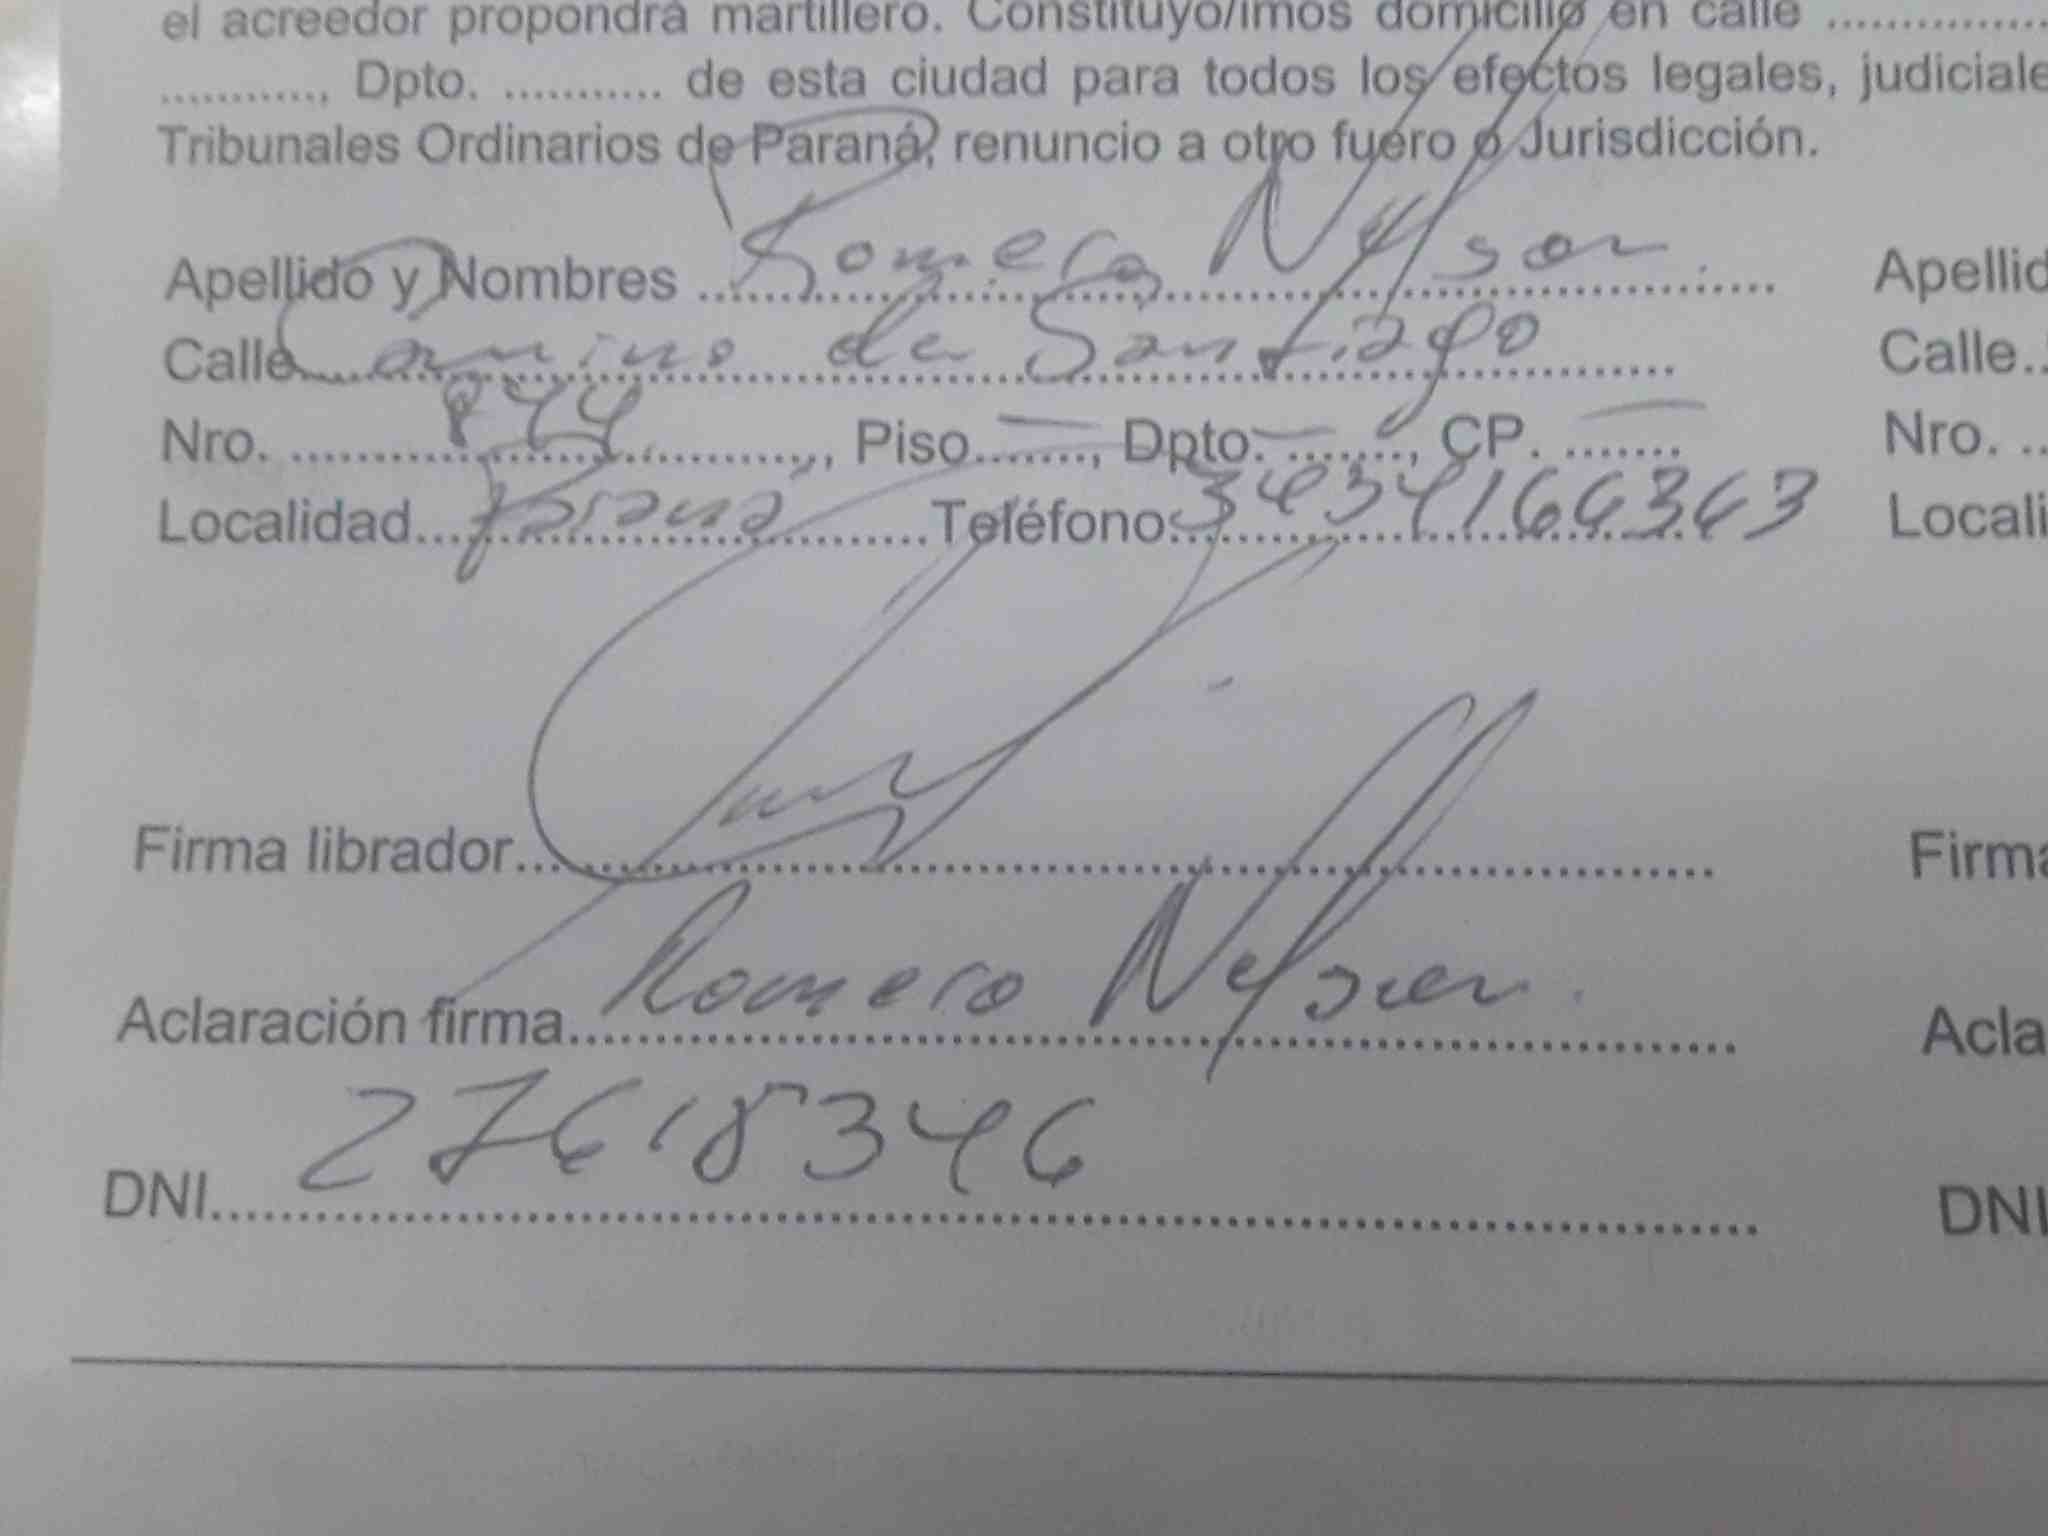 el acreedor propondrá martillero. Constituyo/imos domicilio en calle ................
..........., Dpto. ........... de esta ciudad para todos los efectos legales, judiciale
Tribunales Ordinarios de Paraná, renuncio a otro fuero o Jurisdicción.
Apellido y Nombres Romero Nelson Apellid
Calle Camino de Santiago Calle..
Nro. 844, Piso — , Dpto. — , CP. — Nro. ..
Localidad Paraná Teléfono: 3434166363 Locali
Firma librador Firma
Aclaración firma Romero Nelson Acla
DNI 27618346 DNI